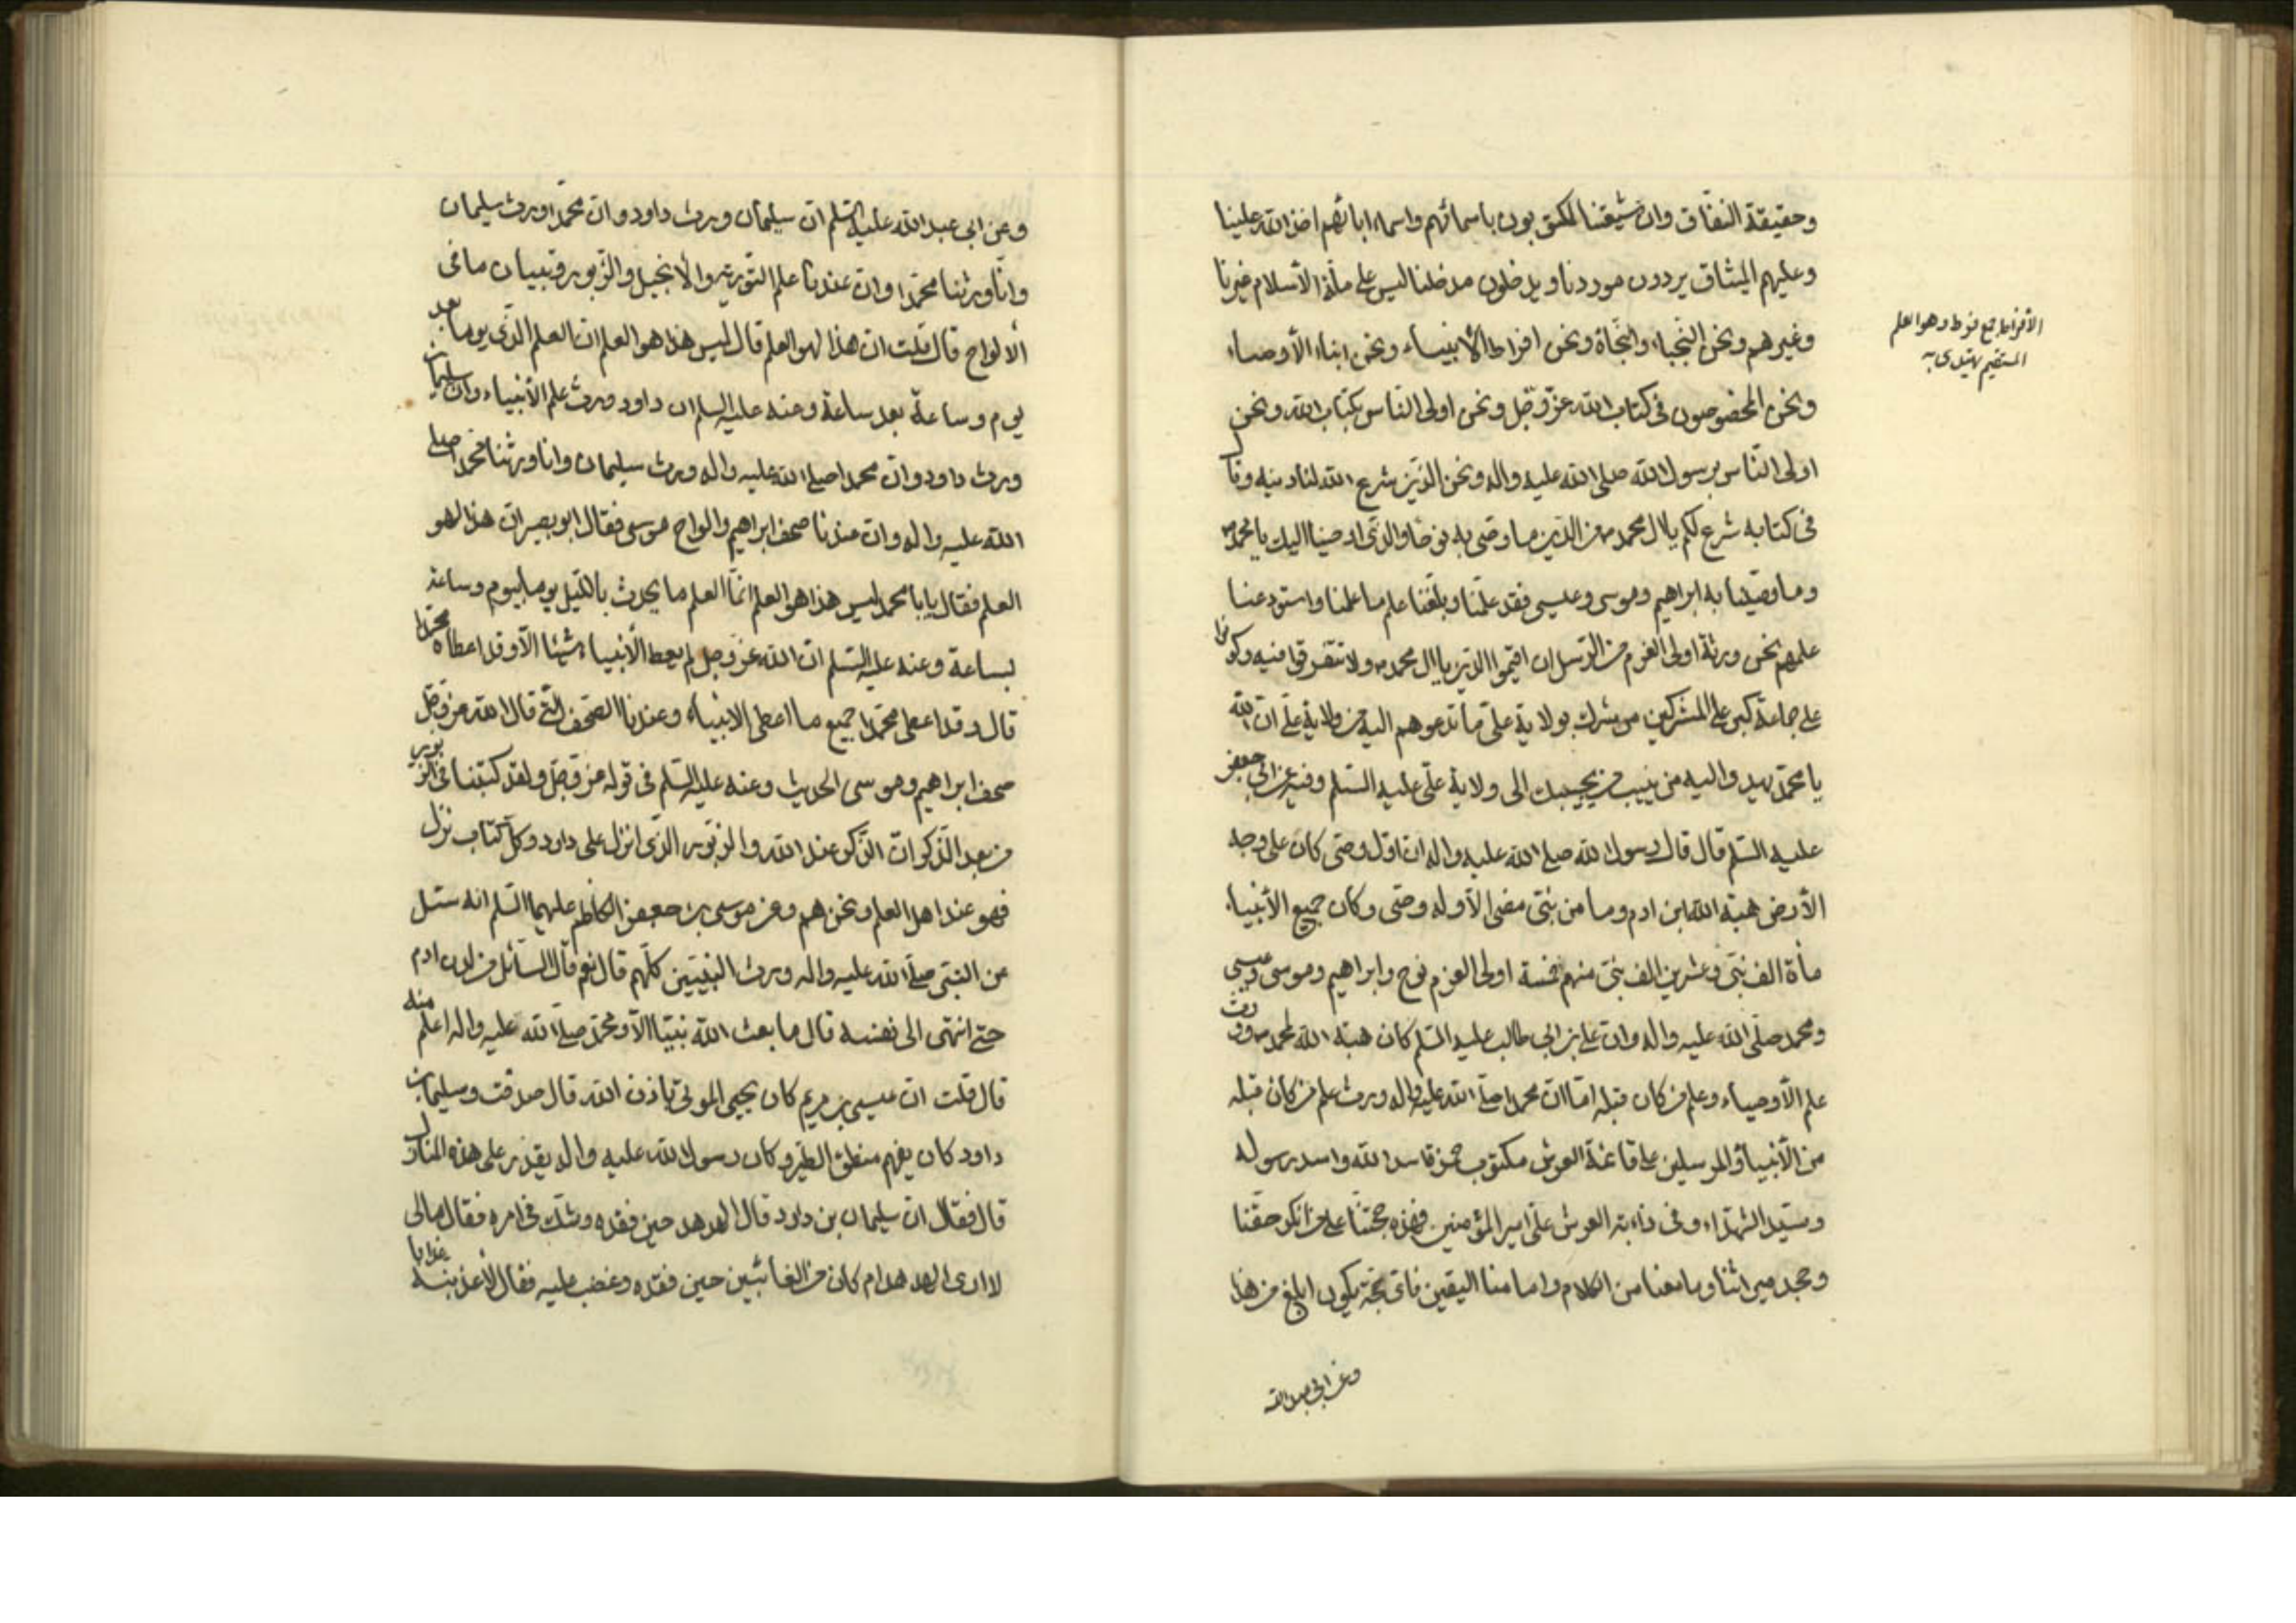 وحقيقة النفاق وان شيعتنا لمكتوبون باسمائهم واسماء ابائهم اخذ الله علينا
وعليهم الميثاق يردون موردنا ويدخلون مدخلنا ليس على ملة الاسلام غيرنا
وغيرهم ونحن النجباء والنجاة ونحن افراط الأنبياء ونحن ابناء الأوصياء
ونحن المخصوصون فى كتاب الله عز وجل ونحن اولى الناس بكتاب الله ونحن
اولى الناس برسول الله صلى الله عليه واله ونحن الذين شرع الله لنا دينه وقال
فى كتابه شرع لكم يا ال محمد من الدين ما وصى به نوحا والذى اوحينا اليك يا محمد
وما وصينا به ابراهيم وموسى وعيسى فقد علمنا وبلغنا علم ما علمنا واستودعنا
علمهم نحن ورثة اولى العزم من الرسل ان اقيموا الدين يا ال محمد ولا تتفرقوا فيه وكونوا
على جماعة كبر على المشركين من شرك بولاية على ما تدعوهم اليه من ولاية على ان الله
يا محمد يهدى اليه من ينيب من يجيبك الى ولاية على عليه السلم وفيه عن ابى جعفر
عليه السلم قال قال رسول الله صلى الله عليه واله ان اول وصى كان على وجه
الأرض هبة الله ابن ادم وما من نبى مضى الا وله وصى وكان جميع الأنبياء
مأة الف نبى وعشرين الف نبى منهم خمسة اولى العزم نوح وابراهيم وموسى وعيسى
ومحمد صلى الله عليه واله وان على بن ابى طالب عليه السلم كان هبة الله لمحمد وورث
علم الأوصياء وعلم من كان قبله اما ان محمدا صلى الله عليه واله ورث علم من كان قبله
من الأنبياء والمرسلين على قائمة العرش مكتوب حمزة اسد الله واسد رسوله
وسيد الشهداء وفى ذوابة العرش على امير المؤمنين فهذه حجتنا على من انكر حقنا
وجحد ميراثنا وما منعنا من الكلام وامامنا اليقين فاى حجة يكون ابلغ من هذا
وعن ابى عبد الله
الأفراط جمع فرط وهو العلم
المستقيم يهتدى به
وعن ابى عبد الله عليه السلم ان سليمان ورث داود وان محمدا ورث سليمان
وانا ورثنا محمدا وان عندنا علم التورية والأنجيل والزبور وتبيان ما فى
الألواح قال قلت ان هذا لهو العلم قال ليس هذا هو العلم ان العلم الذى يوما بعد
يوم وساعة بعد ساعة وعنه عليه السلم ان داود ورث علم الأنبياء وان سليمان
ورث داود وان محمدا صلى الله عليه واله ورث سليمان وانا ورثنا محمدا صلى
الله عليه واله وان عندنا صحف ابراهيم والواح موسى فقال ابو بصير ان هذا لهو
العلم فقال يا ابا محمد ليس هذا هو العلم انما العلم ما يحدث بالليل يوما بيوم وساعة
بساعة وعنه عليه السلم ان الله عز وجل لم يعط الأنبياء شيئا الا وقد اعطاه محمدا
قال وقد اعطى محمدا جميع ما اعطى الانبياء وعندنا الصحف التى قال الله عز وجل
صحف ابراهيم وموسى الحديث وعنه عليه السلم فى قوله عز وجل ولقد كتبنا فى الزبور
من بعد الذكر ان الذكر عند الله والزبور الذى انزل على داود وكل كتاب نزل
فهو عند اهل العلم ونحن هم وعن موسى بن جعفر الكاظم عليهما السلم انه سئل
عن النبى صلى الله عليه واله ورث النبيين كلهم قال نعم قال السائل من لدن ادم
حتى انتهى الى نفسه قال ما بعث الله نبيا الا ومحمد صلى الله عليه واله اعلم منه
قال قلت ان عيسى بن مريم كان يحيى الموتى باذن الله قال صدقت وسليمان بن
داود كان يفهم منطق الطير وكان رسول الله عليه واله يقدر على هذه المنازل
قال فقال ان سليمان بن داود قال للهدهد حين فقده وشك فى امره فقال مالى
لا ارى الهدهد ام كان من الغائبين حين فقده وغضب عليه فقال لأعذبنه عذابا